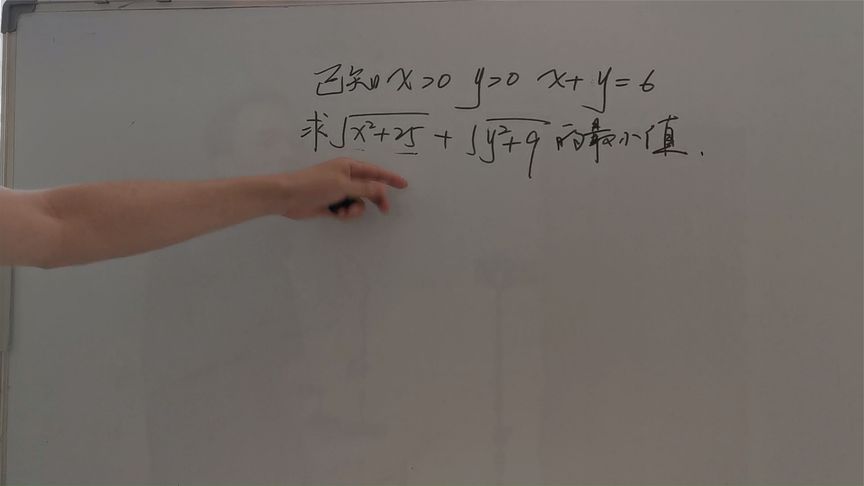 已知 x>0 y>0 x+y=6
求√x²+25 + √y²+9 的最小值.